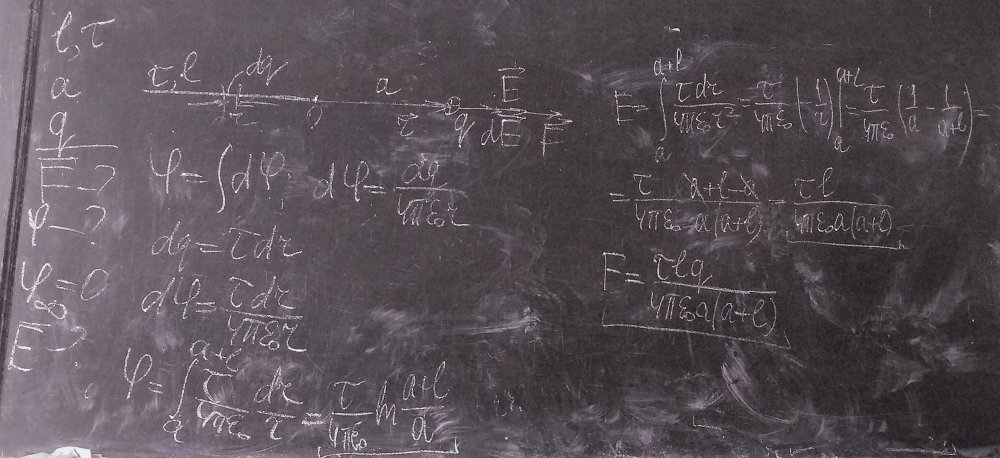 l, τ
a
q
E - ?
φ - ?
φ∞ = 0
E - ?
τ, l dq a E
dr r q dE F
φ = ∫dφ; dφ = dq/4πε₀r
dq = τdr
dφ = τdr/4πε₀r
φ = ∫ₐᵃ⁺ˡ τ/4πε₀ dr/r = τ/4πε₀ ln (a+l)/a
E = ∫ₐᵃ⁺ˡ τdr/4πε₀r² = τ/4πε₀ (-1/r)|ₐᵃ⁺ˡ = τ/4πε₀ (1/a - 1/(a+l)) =
= τ/4πε₀ (a+l-a)/a(a+l) = τl/4πε₀a(a+l)
F = τlq/4πε₀a(a+l)